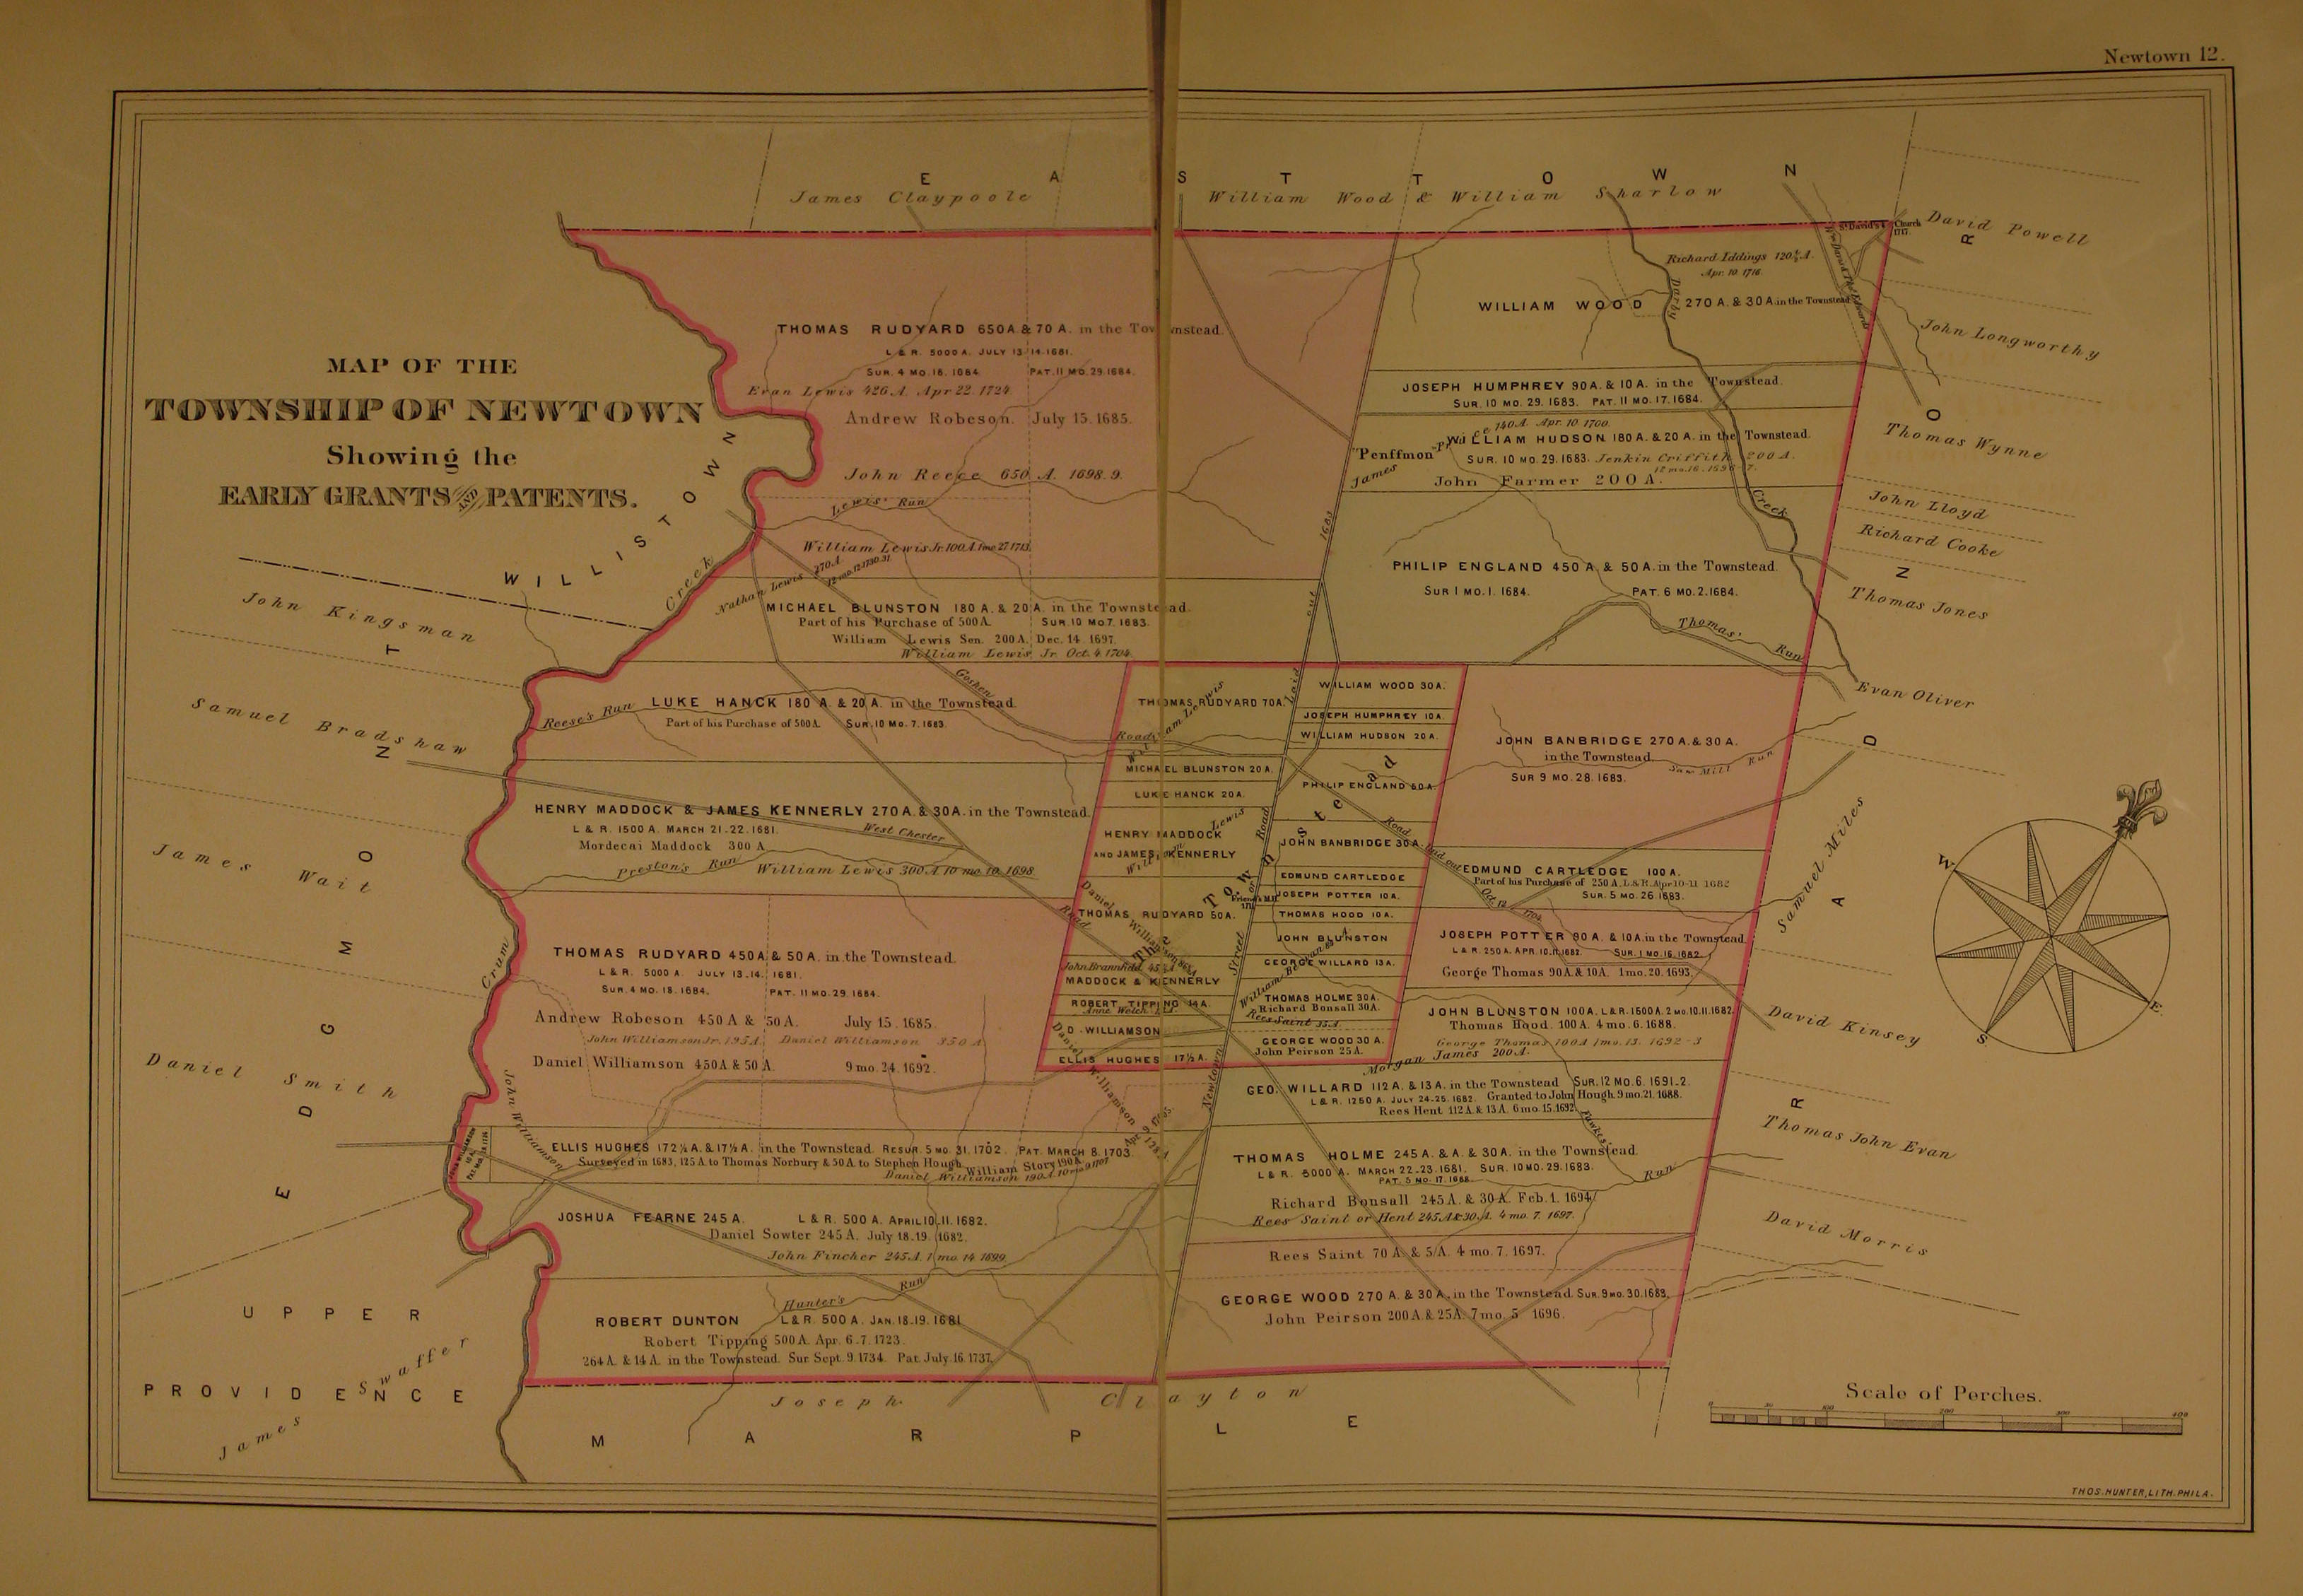 Newtown 12.
MAP OF THE
TOWNSHIP OF NEWTOWN
Showing the
EARLY GRANTS AND PATENTS.
EASTTOWN
James Claypoole
William Wood & William Sharlow
St. David's Church
1717
David Powell
Richard Iddings 120½ A.
Apr. 10. 1716.
WILLIAM WOOD 270 A. & 30 A. in the Townstead
Darby
John Longworthy
THOMAS RUDYARD 650 A. & 70 A. in the Townstead.
L & R. 5000 A. JULY 13-14. 1681.
SUR. 4 MO. 18. 1684. PAT. 11 MO. 29. 1684.
Evan Lewis 426 A. Apr 22. 1724.
Andrew Robeson. July 15. 1685.
John Reece 650 A. 1698.9.
Lewis' Run
William Lewis Jr. 100 A.
JOSEPH HUMPHREY 90 A. & 10 A. in the Townstead.
SUR. 10 MO. 29. 1683. PAT. 11 MO. 17. 1684.
140 A. Apr. 10. 1700.
WILLIAM HUDSON 180 A. & 20 A. in the Townstead.
"Penffmon"
James
SUR. 10 MO. 29. 1683. Jenkin Griffith 200 A.
John Farmer 200 A.
Creek
Thomas Wynne
John Lloyd
Richard Cooke
RADNOR
Thomas Jones
WILLISTOWN
Creek
John Kingsman
Nathan Lewis 270 A.
MICHAEL BLUNSTON 180 A. & 20 A. in the Townstead.
Part of his Purchase of 500 A. SUR. 10 MO. 7. 1683.
William Lewis Sen. 200 A. Dec. 14. 1697.
William Lewis Jr. Oct. 4. 1704.
PHILIP ENGLAND 450 A. & 50 A. in the Townstead.
SUR 1 MO. 1. 1684. PAT. 6 MO. 2. 1684.
Thomas' Run
laid out 1683
Evan Oliver
Samuel Bradshaw
Reese's Run
LUKE HANCK 180 A. & 20 A. in the Townstead.
Part of his Purchase of 500 A. SUR. 10 MO. 7. 1683.
Goshen
Road
THOMAS RUDYARD 70 A.
William Lewis
WILLIAM WOOD 30 A.
JOSEPH HUMPHREY 10 A.
WILLIAM HUDSON 20 A.
MICHAEL BLUNSTON 20 A.
LUKE HANCK 20 A.
PHILIP ENGLAND 50 A.
JOHN BANBRIDGE 270 A. & 30 A.
in the Townstead.
SUR 9 MO. 28. 1683.
Saw Mill Run
James Wait
EDGMONT
HENRY MADDOCK & JAMES KENNERLY 270 A. & 30 A. in the Townstead.
L & R. 1500 A. MARCH 21-22. 1681.
Mordecai Maddock 300 A
West Chester
Road
Preston's Run
William Lewis 300 A 10 mo. 10. 1698
HENRY MADDOCK
AND JAMES KENNERLY
William Lewis
JOHN BANBRIDGE 30 A.
EDMUND CARTLEDGE
JOSEPH POTTER 10 A.
Friends M.H.
The Townstead
Road laid out Oct. 12 1704
EDMUND CARTLEDGE 100 A.
Part of his Purchase of 250 A. L. & R. Apr 10-11 1682
SUR. 5 MO. 26. 1683.
Samuel Miles
THOMAS RUDYARD 50 A.
THOMAS HOOD 10 A.
JOHN BLUNSTON
GEORGE WILLARD 13 A.
JOSEPH POTTER 90 A. & 10 A. in the Townstead
L & R. 250 A. APR. 10. 11. 1682. SUR. 1 MO. 16. 1682.
George Thomas 90 A & 10 A. 1 mo. 20. 1693.
Crum
THOMAS RUDYARD 450 A & 50 A. in the Townstead.
L & R. 5000 A. JULY 13-14. 1681.
SUR. 4 MO. 18. 1684. PAT. 11 MO. 29. 1684.
Andrew Robeson 450 A & 50 A. July 15. 1685.
John Williamson Jr. 195 A. Daniel Williamson 350 A
Daniel Williamson 450 A & 50 A. 9 mo. 24. 1692.
MADDOCK & KENNERLY
ROBERT TIPPING 14 A.
Anne Welch
D. WILLIAMSON
ELLIS HUGHES 17½ A.
THOMAS HOLME 30 A.
Richard Bonsall 30 A.
Rees Saint 35 A.
GEORGE WOOD 30 A.
John Peirson 25 A.
Newtown Street Road
Daniel Williamson
JOHN BLUNSTON 100 A. L & R. 1500 A. 2 MO. 10. 11. 1682.
Thomas Hood. 100 A. 4 mo. 6. 1688.
George Thomas 100 A 1 mo. 13. 1692-3
Morgan James 200 A.
David Kinsey
Daniel Smith
John Williamson
GEO. WILLARD 112 A. & 13 A. in the Townstead SUR. 12 MO. 6. 1691-2.
L & R. 1250 A. JULY 24-25. 1682. Granted to John Hough. 9 mo. 21. 1688.
Rees Hent 112 A. & 13 A. 6 mo. 15. 1692.
ELLIS HUGHES 172½ A. & 17½ A. in the Townstead. RESUR. 5 MO. 31. 1702. PAT. MARCH 8. 1703.
Surveyed in 1683, 125 A. to Thomas Norbury & 50 A. to Stephen Hough.
William Story 190 A.
Daniel Williamson 190 A. 10 mo. 9. 1707
THOMAS HOLME 245 A. & A. & 30 A. in the Townstead.
L & R. 5000 A. MARCH 22-23. 1681. SUR. 10 MO. 29. 1683.
PAT. 5 MO. 17. 1688.
Fawkes' Run
Richard Bonsall 245 A. & 30 A. Feb. 1. 1694
Rees Saint or Hent 245 A & 30 A. 4 mo. 7. 1697.
Thomas John Evan
JOSHUA FEARNE 245 A. L & R. 500 A. APRIL 10-11. 1682.
Daniel Sowter 245 A. July 18.19. 1682.
John Fincher 245 A. 1 mo. 14 1699
Rees Saint 70 A & 5 A. 4 mo. 7. 1697.
David Morris
Hunter's Run
ROBERT DUNTON L & R. 500 A. JAN. 18-19. 1681
Robert Tipping 500 A. Apr. 6-7. 1723.
264 A. & 14 A. in the Townstead. Sur. Sept. 9. 1734. Pat. July. 16. 1737.
GEORGE WOOD 270 A. & 30 A. in the Townstead. SUR. 9 MO. 30. 1683.
John Peirson 200 A. & 25 A. 7 mo. 5. 1696.
UPPER
PROVIDENCE
James Swaffer
Joseph Clayton
MARPLE
W
E
S
Scale of Perches.
0 50 100 200 300 400
THOS. HUNTER, LITH. PHILA.